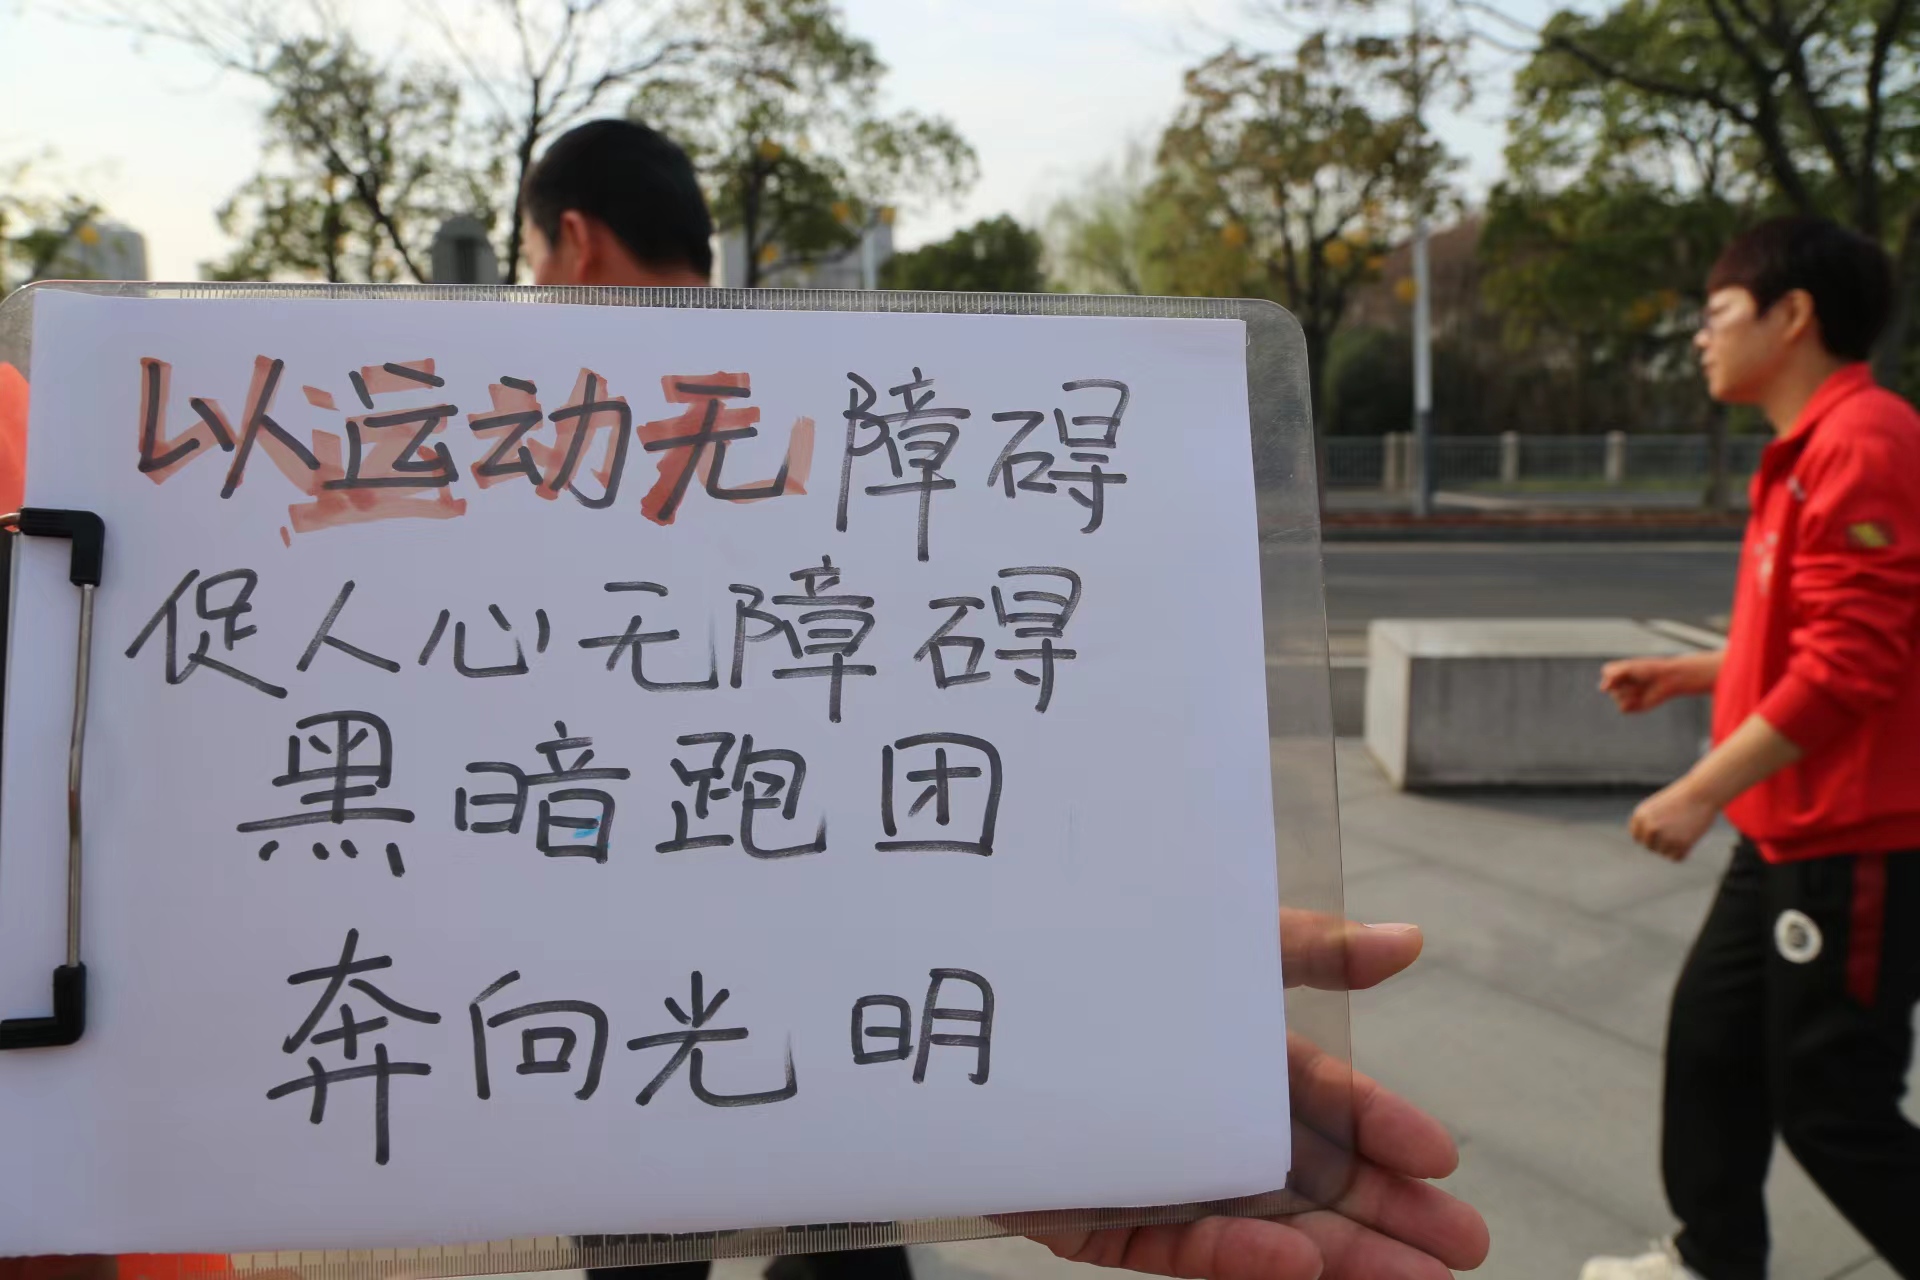 以运动无障碍
促人心无障碍
黑暗跑团
奔向光明